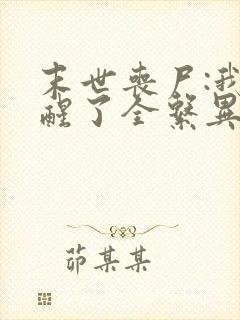 末世丧尸:我
醒了全系異
茆某某